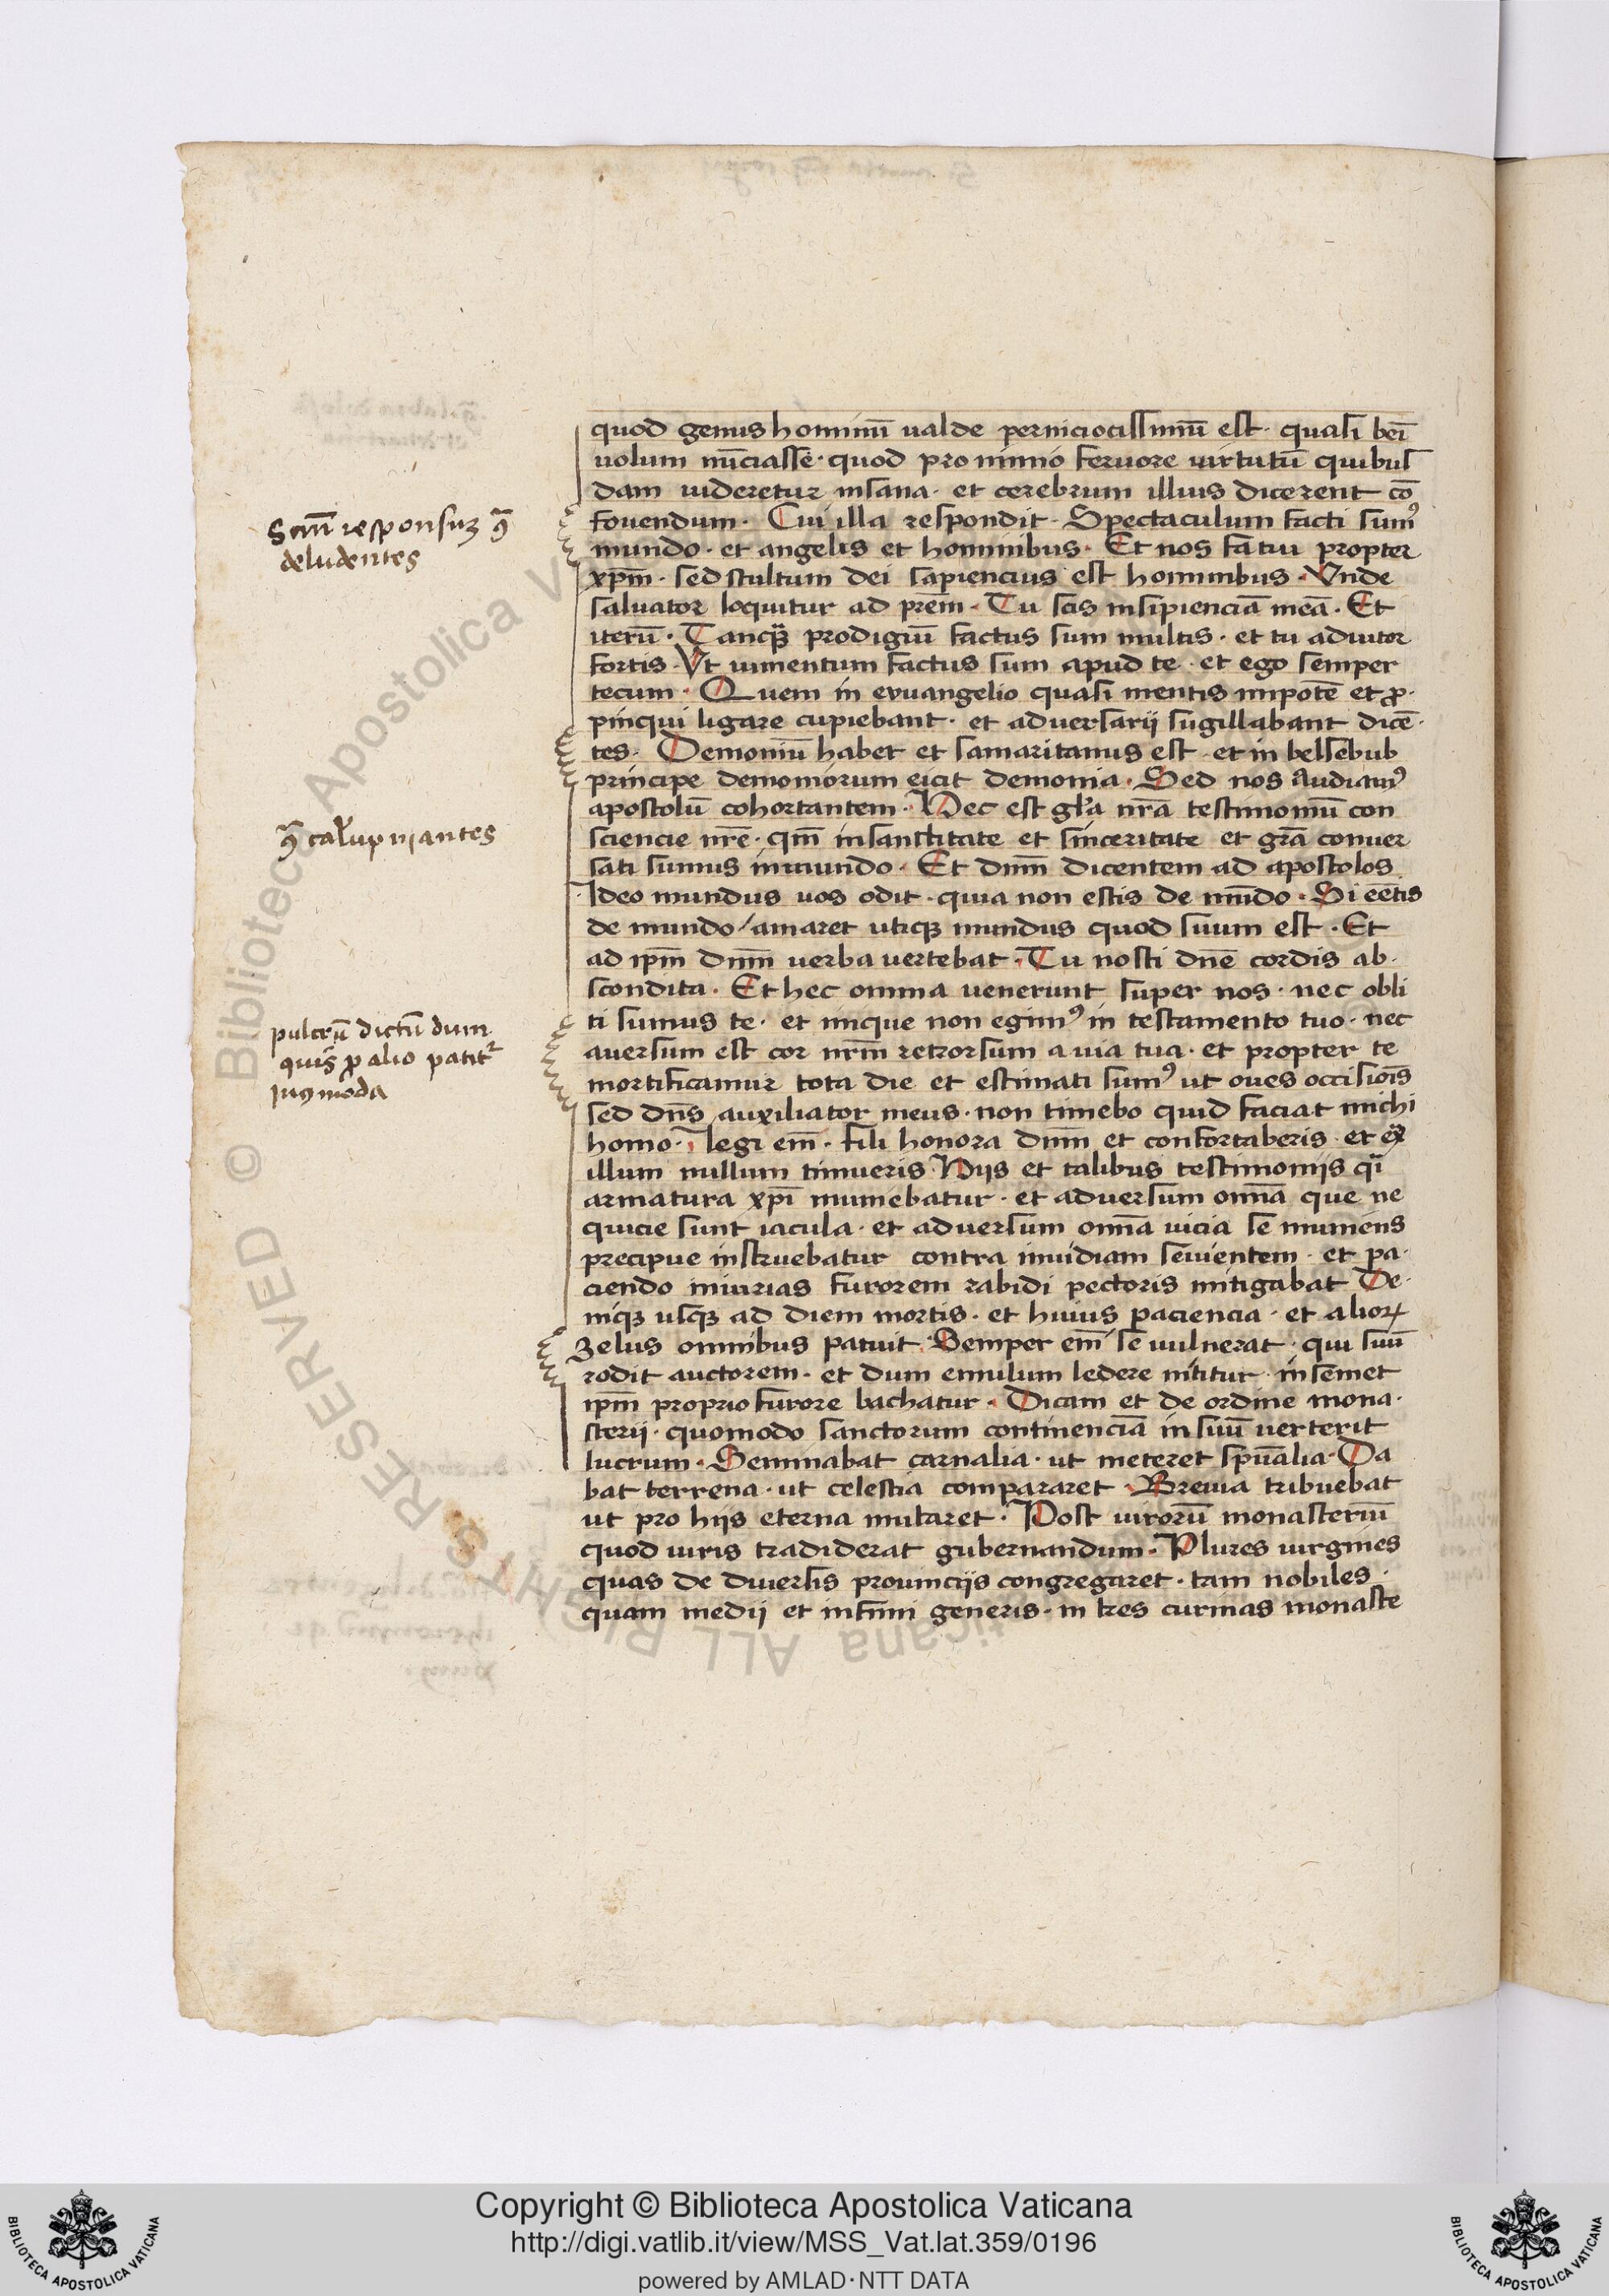 quod genus hominū ualde perniciocissimū est · quasi beī
uolum nūciasse · quod pro nimio feruore uirtutū quibus
dam uideretur insana · et cerebrum illius dicerent cō
fouendum · Cui illa respondit · Spectaculum facti sumꝰ
mundo · et angelis et hominibus · Et nos fatui propter
xpm̄ · sed stultum dei sapiencius est hominibus · Vnde
saluator loquitur ad prēm · Tu scis insipienciā meā · Et
iterū · Tancqꝫ prodigiū factus sum multis · et tu adiutor
fortis · Vt iumentum factus sum apud te · et ego semper
tecum · Quem in euuangelio quasi mentis impotē et ꝓ·
pinqui ligare cupiebant · et aduersarij sugillabant dicē·
tes · Demoniū habet et samaritanus est · et in belsebub
principe demoniorum eicit demonia · Sed nos audiamꝰ
apostolū cohortantem · Hec est glīa nrā testimoniū con
sciencie nrē · qm̄ in sanctitate et sinceritate et grā conuer
sati sumus in mundo · Et dnm̄ dicentem ad apostolos
Ideo mundus uos odit · quia non estis de mūdo · Si eētis
de mundo / amaret utiqꝫ mundus quod suum est · Et
ad ipm̄ dnm̄ uerba uertebat · Tu nosti dnē cordis ab·
scondita · Et hec omnia uenerunt super nos · nec obli
ti sumus te · et inique non egimꝰ in testamento tuo · nec
auersum est cor nrm̄ retrorsum a uia tua · et propter te
mortificamur tota die et estimati sumꝰ ut oues occisiōis
sed dns̄ auxiliator meus · non timebo quid faciat michi
homo · Iegi em̄ · fili honora dnm̄ et confortaberis · et
illum nullum timueris · Hijs et talibus testimonijs q̄i
armatura xpī muniebatur · et aduersum omnīa que ne
quicie sunt iacula · et aduersum omnīa uicia se muniens
precipue instruebatur contra inuidiam seuientem · et pa·
ciendo iniurias furorem rabidi pectoris mitigabat De·
niqꝫ usqꝫ ad diem mortis · et huius paciencia · et alioꝝ
zelus omnibus patuit · Semper em̄ se uulnerat · qui suū
rodit auctorem · et dum emulum ledere nititur · in semet
ipm̄ proprio furore bachatur · Dicam et de ordine mona·
sterij · quomodo sanctorum continenciā in suū uerterit
lucrum · Seminabat carnalia · ut meteret spūalia · Da
bat terrena · ut celestia compararet · Breuia tribuebat
ut pro hijs eterna mutaret · Post uirorū monasteriū
quod uiris tradiderat gubernandum · Plures uirgines
quas de diuersis prouincijs congregaret · tam nobiles ·
quam medij et infimi generis · in tres curmas monaste
Scm̄ responsuꝫ ꝯ̄
deludentes
ꝯ̄ calupniantes
pulcrū dictū dum
quis ꝓ alio patitᷣ
inꝯmoda
Copyright © Biblioteca Apostolica Vaticana
http://digi.vatlib.it/view/MSS_Vat.lat.359/0196
powered by AMLAD·NTT DATA
BIBLIOTECA APOSTOLICA VATICANA
BIBLIOTECA APOSTOLICA VATICANA